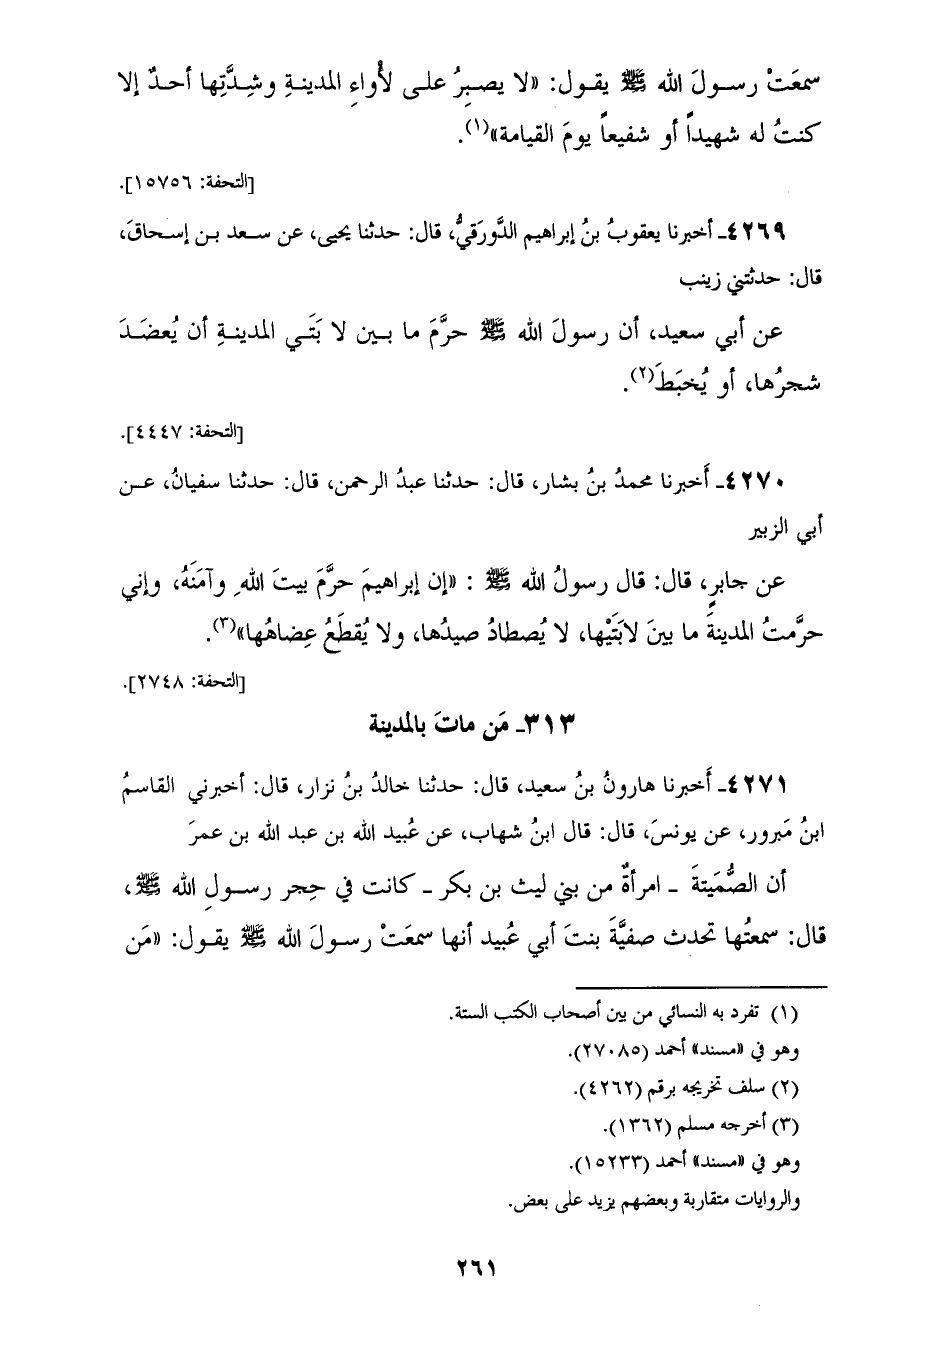 سمعَتْ رسـولَ الله ﷺ يقـول: «لا يصـبِرُ علـى لأْواءِ المدينـةِ وشِدَّتِهـا أحـدٌ إلا
كنتُ له شهيداً أو شفيعاً يومَ القيامة»(١).
[التحفة: ١٥٧٥٦].
٤٢٦٩ـ أخبرنا يعقوبُ بنُ إبراهيم الدَّورَقيُّ، قال: حدثنا يحيى، عن سـعد بـن إسـحاقَ،
قال: حدثتني زينب
عن أبي سعيد، أن رسولَ الله ﷺ حرَّمَ ما بـين لا بَتَـي المدينـةِ أن يُعضَـدَ
شجرُها، أو يُخبَطَ(٢).
[التحفة: ٤٤٤٧].
٤٢٧٠ـ أَخبرنا محمدُ بنُ بشار، قال: حدثنا عبدُ الرحمن، قال: حدثنا سفيانُ، عـن
أبي الزبير
عن جابرٍ، قال: قال رسولُ الله ﷺ : «إن إبراهيمَ حرَّمَ بيتَ اللهِ وآمَنَهُ، وإني
حرَّمتُ المدينةَ ما بينَ لابَتَيْها، لا يُصطادُ صيدُها، ولا يُقطَعُ عِضاهُها»(٣).
[التحفة: ٢٧٤٨].
٣١٣ـ مَن ماتَ بالمدينة
٤٢٧١ـ أَخبرنا هارونُ بنُ سعيد، قال: حدثنا خالدُ بنُ نزار، قال: أخبرني القاسمُ
ابنُ مَبرور، عن يونسَ، قال: قال ابنُ شهاب، عن عُبيد الله بن عبد الله بن عمرَ
أن الصُّمَيتةَ ـ امرأةٌ من بني ليث بن بكر ـ كانت في حِجر رسـولِ الله ﷺ،
قال: سمعتُها تحدث صفيَّةَ بنتَ أبي عُبيد أنها سمعَتْ رسـولَ الله ﷺ يقـول: «مَن
(١) تفرد به النسائي من بين أصحاب الكتب الستة.
وهو في «مسند» أحمد (٢٧٠٨٥).
(٢) سلف تخريجه برقم (٤٢٦٢).
(٣) أخرجه مسلم (١٣٦٢).
وهو في «مسند» أحمد (١٥٢٣٣).
والروايات متقاربة وبعضهم يزيد على بعض.
٢٦١